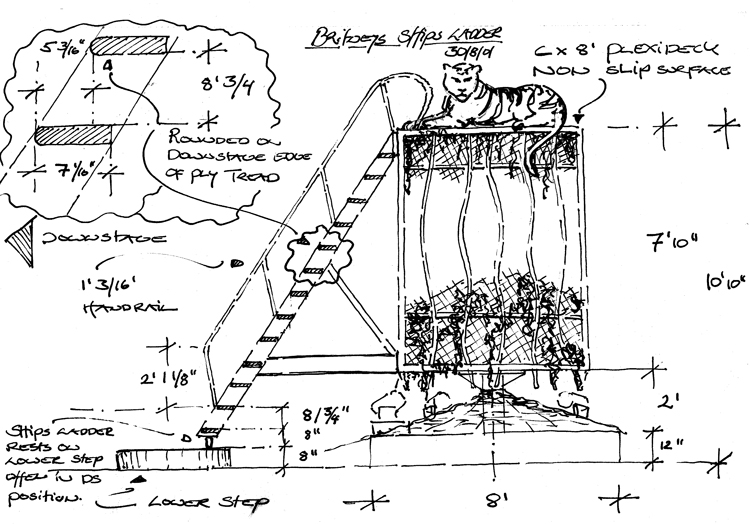 BRITNEYS SHIPS LADDER
30/8/01
5 3/16"
8' 3/4
7 1/16"
ROUNDED ON
DOWNSTAGE EDGE
OF PLY TREAD
DOWNSTAGE
6 x 8' PLEXIDECK
NON SLIP SURFACE
1' 3/16'
HANDRAIL
7'10"
10'10"
2' 1 1/8"
8/3/4"
8"
8"
2'
12"
SHIPS LADDER
RESTS ON
LOWER STEP
IN DS
POSITION.
LOWER STEP
8'